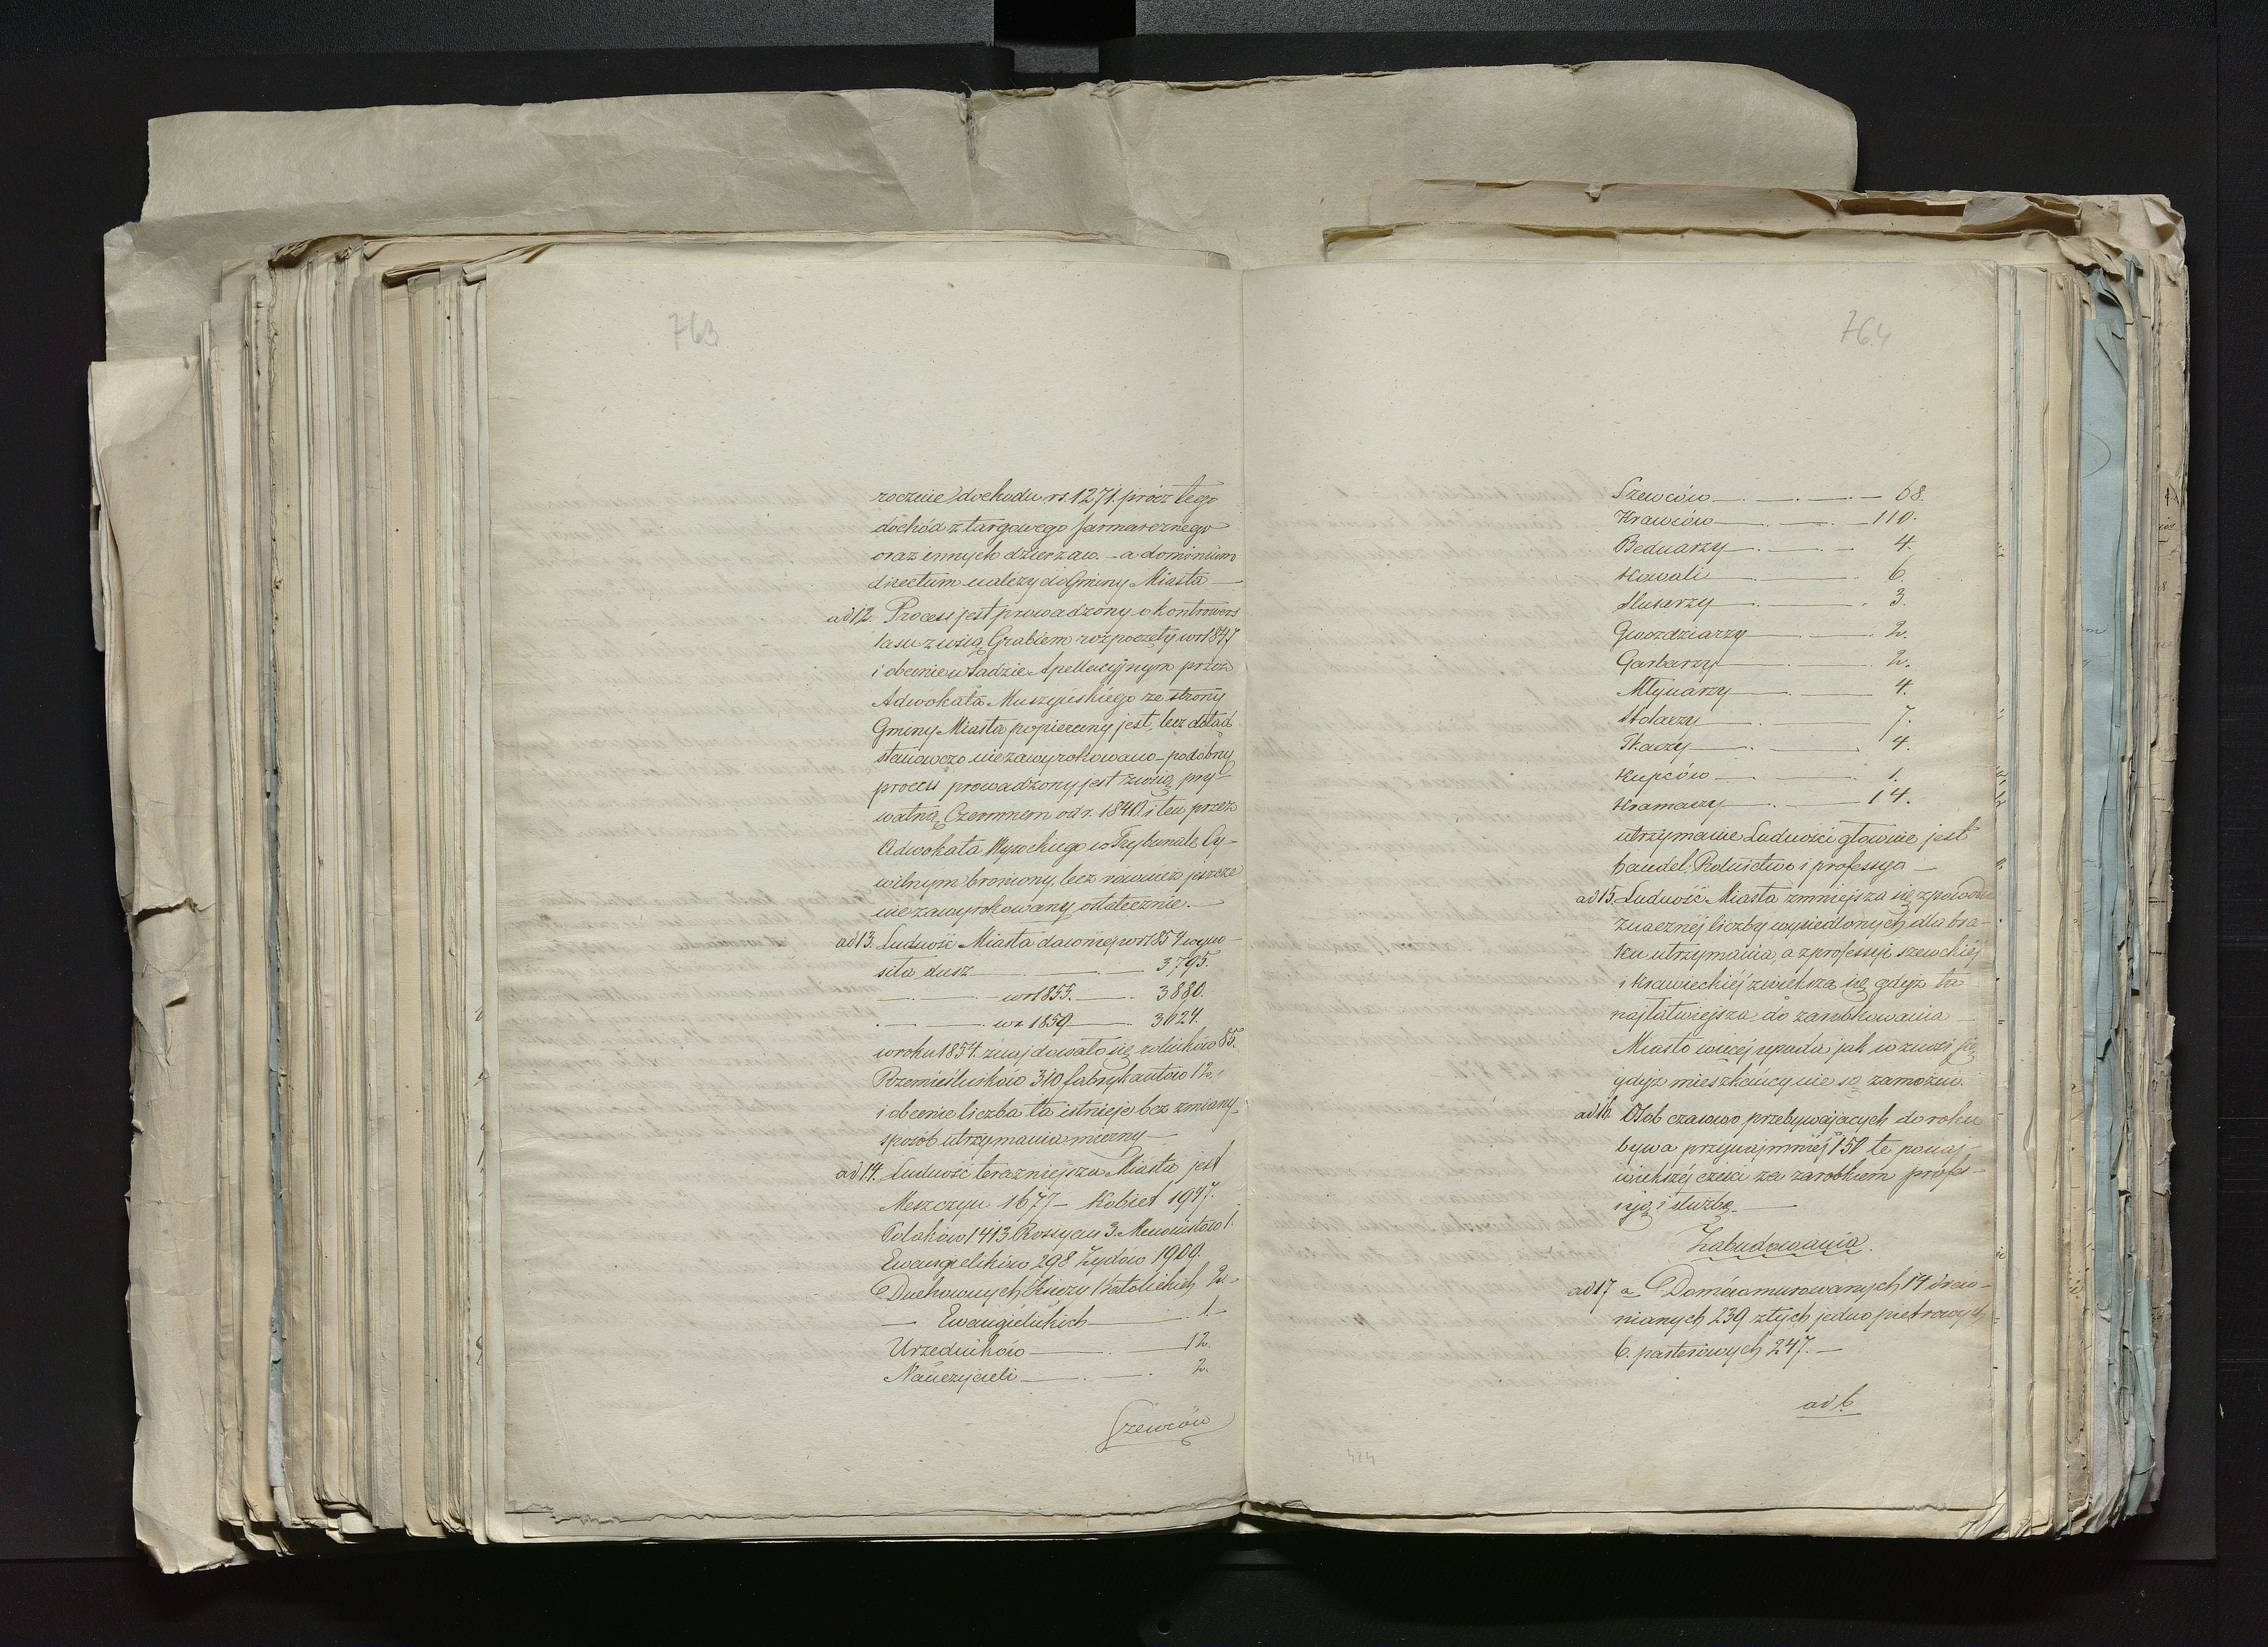 763
rocznie dochodu rs. 1271. prócz tego
dochód z targowego Jarmarcznego
oraz innych dzierzaw. – a dominium
directum należy do Gminy Miasta —
ad 12. Process jest prowadzony o kontrowers
lasu z wsią Grabiem rozpoczęty w r 1847
i obecnie w Sądzie Apellacyjnym przez
Adwokata Muszyńskiego ze strony
Gminy Miasta popierany jest, lecz dotąd
stanowczo niezawyrokowano – podobny
process prowadzony jest z wsią pry-
watną Czermnem od r. 1840. i ten przez
Adwokata Wysockiego w Trybunale Cy-
wilnym broniony, lecz również jeszcze
nie zawyrokowany ostatecznie. —
ad 13. Ludność Miasta dawniej w r 1854 wyno-
siła dusz — . — . — 3795.
— . — . — w r 1855. — . 3880.
. — . — . w r. 1859 — . 3624.
w roku 1854. znajdowało się rolników 85.
Rzemieślników 310 fabrykantów 12.
i obecnie liczba ta istnieje bez zmiany
sposób utrzymania mierny —
ad 14. Ludność teraźniejsza Miasta jest
Męszczyzn 1677 – Kobiet 1947.
Polaków 1413 Rossyan 3. Menonistów 1.
Ewangelików 298 Żydów 1909.
Duchownych Księży Katolickich 2.
— Ewangielickich — . 1 –
Urzędników — . — 12.
Nauczycieli — . — . 2.
Szewców
764
Szewców — . — . — . — 68.
Krawców — . — . — 110.
Bednarzy — . — . — 4.
Kowali — . — . 6.
Slusarzy — . — . 3.
Gwozdziarzy — . — . 2.
Garbarzy — . — . 2.
Młynarzy — . — 4.
Stolarzy — . — . 7.
Tkaczy — . — 4.
Kupców — . — . 1.
Kramarzy — . — 14.
utrzymanie Ludności głównie jest
handel. Rolnictwo i professya —
ad 15. Ludność Miasta zmniejsza się z powodu
znacznéj liczby wysiedlonych dla bra-
ku utrzymania, a z professyi szewckiéj
i Krawieckiéj zwiększa się gdyż ta
najłatwiejsza do zarobkowania —
Miasto więcéj upada jak wznosi się
gdyż mieszkańcy nie są zamożni.
ad 16. Osób czasowo przebywających do roku
bywa przynajmniéj 150 te po naj-
większéj części za zarobkiem profes-
syją i służbą. —
Zabudowania.
ad 17 a. Domów murowanych 14 drew-
nianych 239 z tych jedno piętrowych
6. parterowych 247. —
ad b.
424